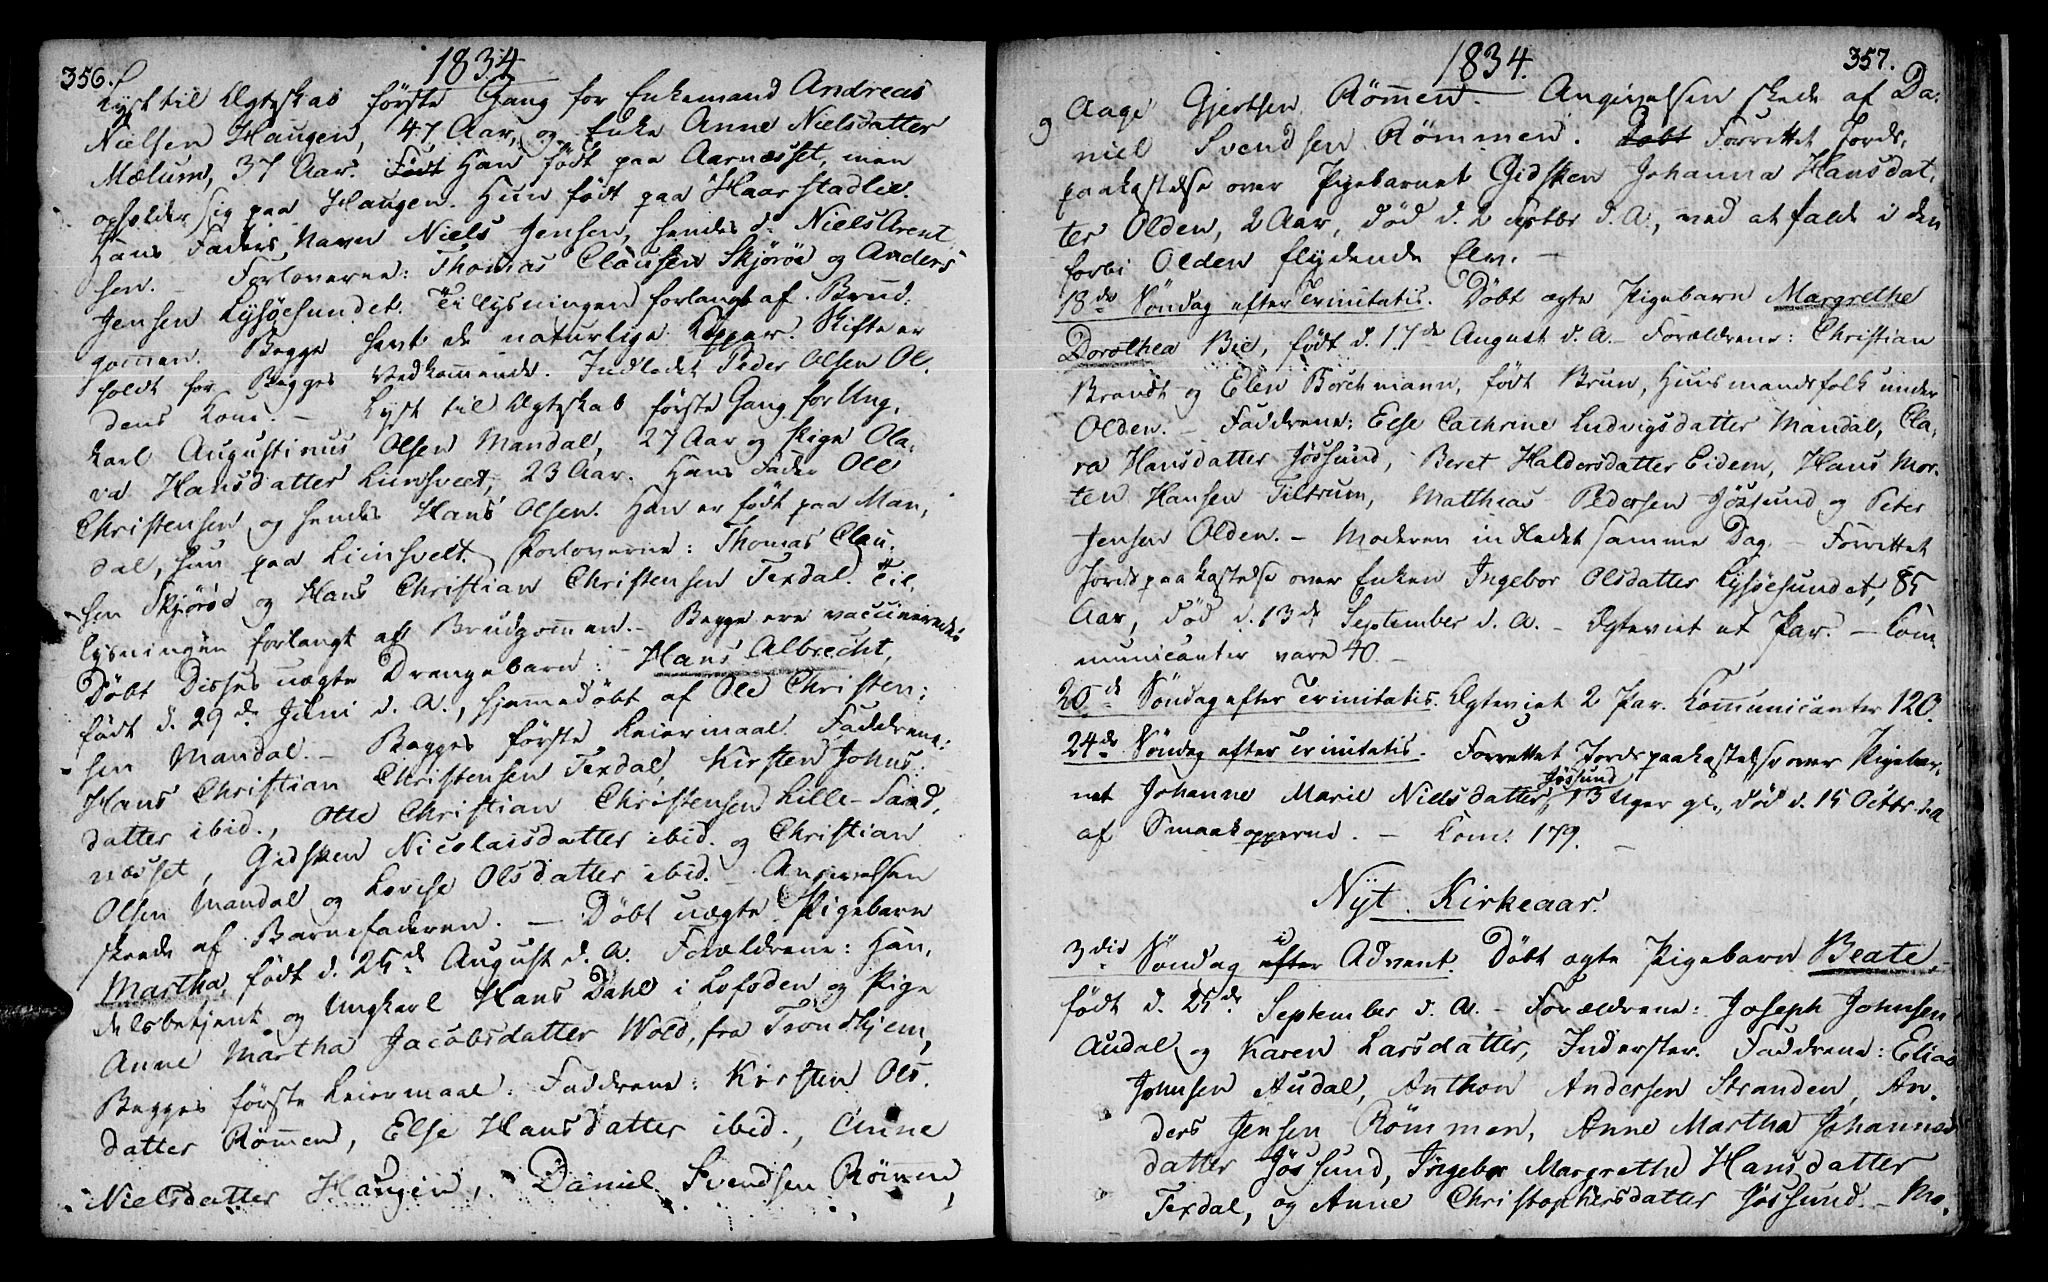 356.
1834
Lyst til Ægteskab første Gang for Enkemand Andreas
Nielsen Haugen, 47 Aar, og Enke Anne Nielsdatter
Mælum, 37 Aar. Født Han født paa Aarnæsset, men
opholder sig paa Haugen. Hun født paa Haarstadlie.
Hans Faders Navn Niels Jensen, hendes d. Niels Arent
sen. – Forloverne: Thomas Clausen Skjørøe og Anders
Jensen Lysøesundet. Tillysningen forlangt af Brud
gomen. Begge havt de naturlige Kopper. Skifte er
holdt for Begges Vedkomende. Indledet Peder Olsen Ol.
dens Kone. – Lyst til Ægteskab første Gang for Ung,
karl Augustinus Olsen Mandal, 27 Aar og Pige Ola,
va Hansdatter Liinsvedt, 23 Aar. Hans Fader Ole
Christensen og hendes Hans Olsen. Han er født paa Man,
dal, hun paa Liinsvelt. Forloverne: Thomas Clau.
sen Skjørøe og Hans Christian Christensen Texdal. Til,
lysningen forlangt af Brudgommen. – Begge ere vaccinerede.
Døbt Disses uægte Drengebarn: Hans Albrecht,
født d. 29de Juni d. A., hjemmedøbt af Ole Christen:
sen Mandal. – Begges første Leiermaal. Faddrene:
Hans Christian Christensen Texdal, Kirsten Johns.
datter ibid., Otte Christian Christensen Lille-Sand,
næsset, Gidsken Nicolaisdatter ibid. og Christian
Olsen Mandal og Lovise Olsdatter ibid. – Angivelsen
skeede af Barnefaderen. – Døbt uægte Pigebarn
Martha, født d. 25de August d. A. Forældrene: Han,
delsbetjent og Ungkarl Hans Dahl i Lofoden og Pige
Anne Martha Jacobsdatter Wold, fra Trondhjem,
Begges første Leiermaal. Faddrene: Kirsten Ols.
datter Rømen, Else Hansdatter ibid., Anne
Nielsdatter Haugen, Daniel Svendsen Rømen,
1834.
357.
og Aage Gjertsen Rømen. Angivelsen skede af Da:
niel Svendsen Rømmen. Døbt Forrettet Jords,
paakastelse over Pigebarnet Gidsken Johanna Hansdat,
ter Olden, 2 Aar, død d. 2 Septbr d. A., ved at falde i den
forbi Olden flydende Elv. –
18de Søndag efter Trinitatis. Døbt ægte Pigebarn Margrethe
Dorothea Bie, født d. 17de August d. A. – Forældrene: Christian
Brandt og Elen Borchmann, født Brun, Huusmandsfolk under
Olden. – Faddrene: Else Cathrine Ludvigsdatter Mandal, Cla,
ra Hansdatter Jøssund, Beret Haldersdatter Eidem, Hans Mor.
ten Hansen Tiltrum, Matthias Pedersen Jøssund og Peter
Jensen Olden. – Moderen indledet samme Dag. – Forrettet
Jordspaakastelse over Enken Ingebor Olsdatter Lysøesundet, 85
Aar, død d. 13de September d. A. – Ægteviet et Par. – Com,
municanter vare 40. –
20de Søndag efter Trinitatis. Ægteviet 2 Par. Comunicanter 120.
24de Søndag efter Trinitatis. Forrettet Jordspaakastelse over Pigebar,
net Johanne Marie Nielsdatter Jøssund, 13 Uger gl., død d. 15 Octbr. d. A
af Smaakopperne. – Com. 179.
Nyt Kirkeaar.
3die Søndag efter i Advent. Døbt ægte Pigebarn Beate,
født d. 25de September d. A. – Forældrene: Joseph Johnsen
Audal og Karen Larsdatter, Inderster. Faddrene: Elias
Johnsen Audal, Anthon Andersen Stranden, An.
ders Jensen Rømmen, Anne Martha Johannes
datter Jøssund, Ingebor Margrethe Hansdatter
Texdal, og Anne Christophersdatter Jøssund. – Mo.